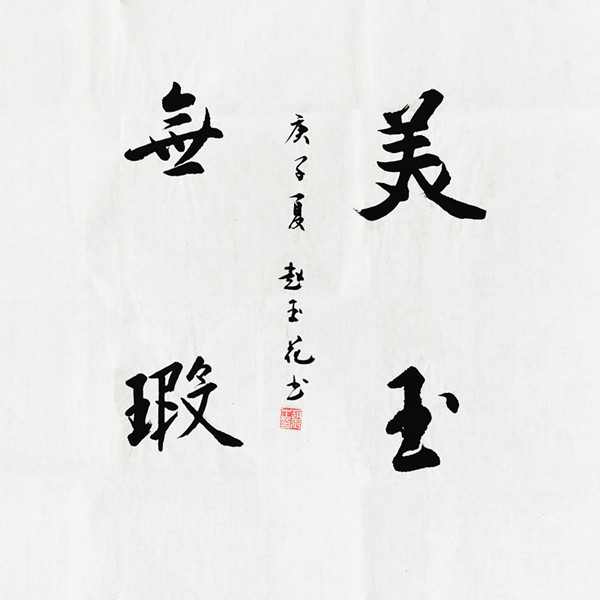 美玉
無瑕
庚子夏 趙玉花书